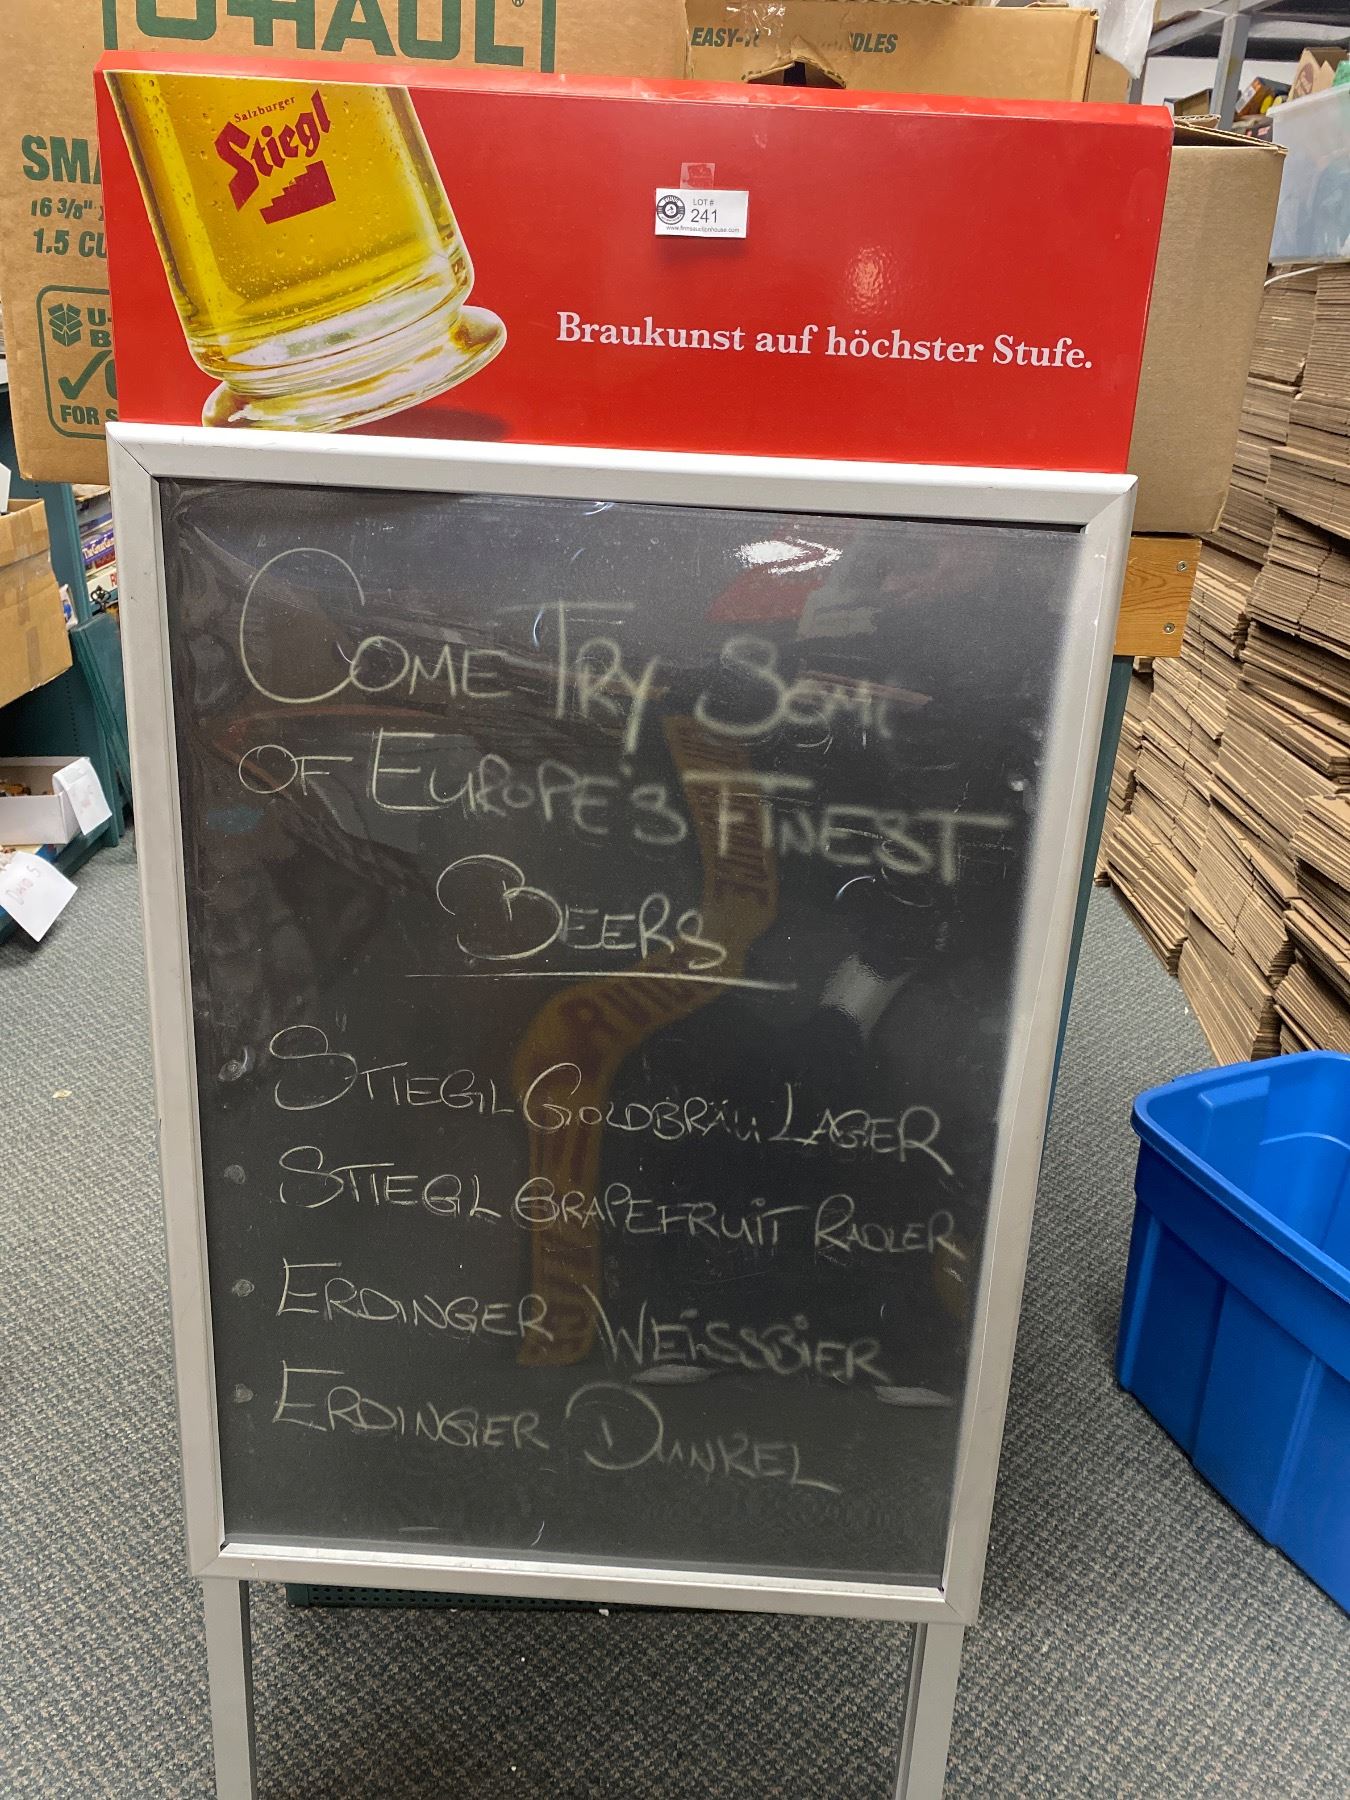 U-HAUL
EASY-
DLES
SMA
16 3/8"
1.5 CU
U-
B
FOR S
Salzburger
Stiegl
LOT #
241
www.finnsauctionhouse.com
Braukunst auf höchster Stufe.
COME TRY SOME
OF EUROPE'S FINEST
BEERS
STIEGL GOLDBRÄU LAGER
STIEGL GRAPEFRUIT RADLER
ERDINGER WEISSBIER
ERDINGER DUNKEL